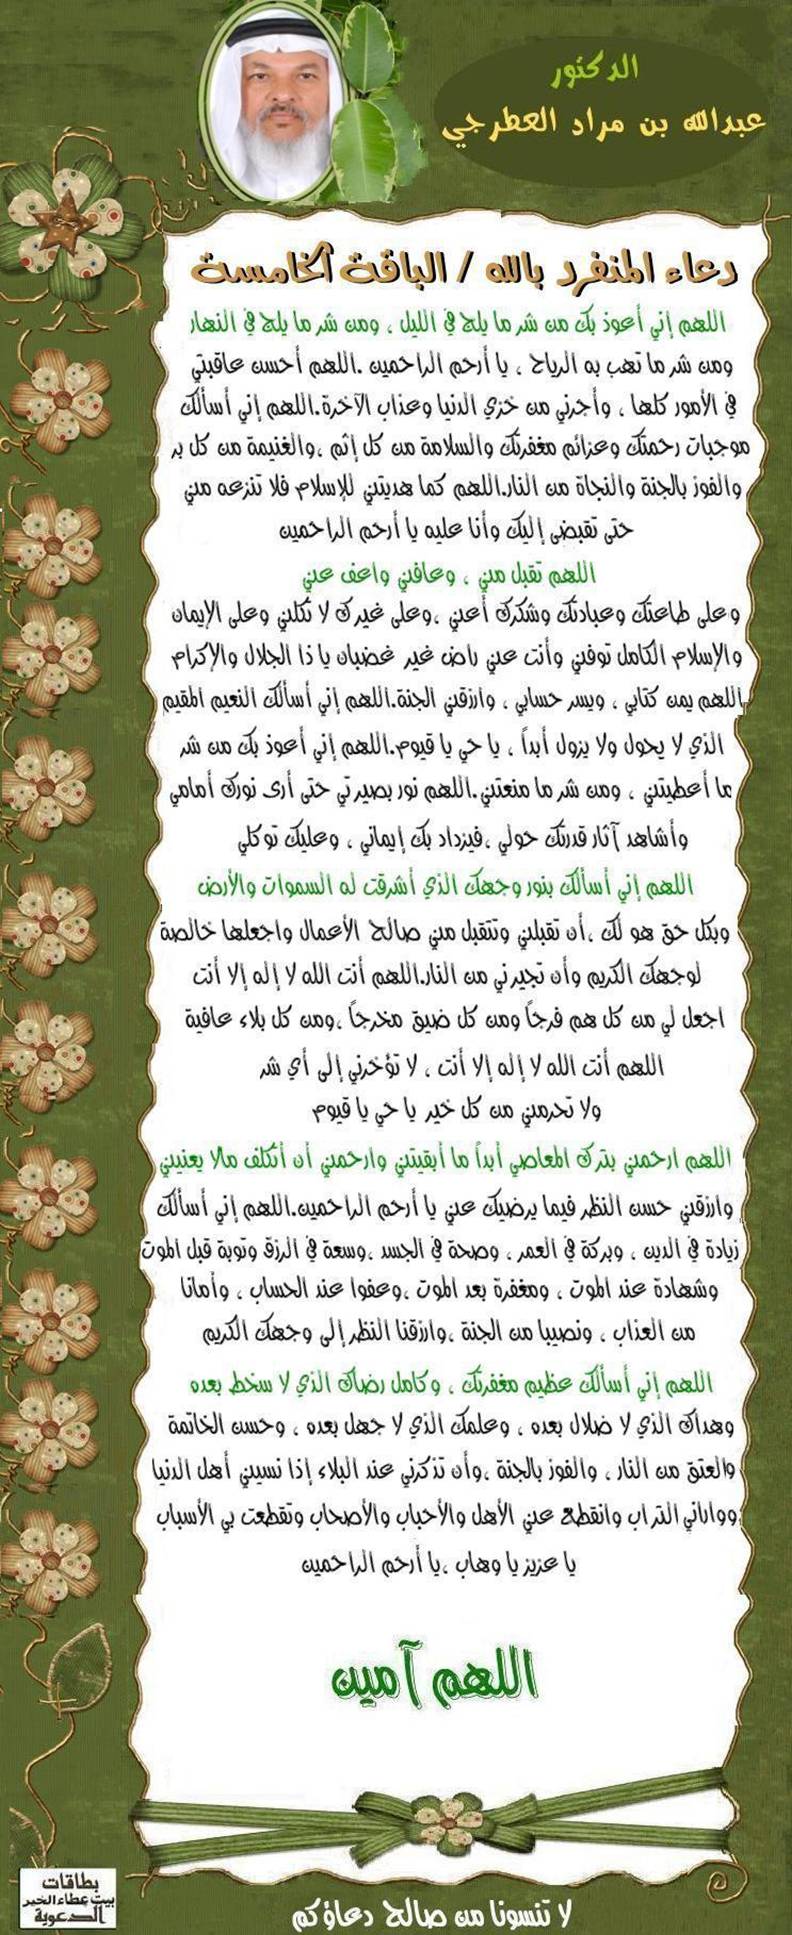 الدكتور
عبدالله بن مراد العطرجي
دعاء المنفرد بالله / الباقة الخامسة
اللهم إني أعوذ بك من شر ما يلج في الليل ، ومن شر ما يلج في النهار
ومن شر ما تهب به الرياح ، يا أرحم الراحمين .اللهم أحسن عاقبتي
في الأمور كلها ، وأجرني من خزي الدنيا وعذاب الآخرة.اللهم إني أسألك
موجبات رحمتك وعزائم مغفرتك والسلامة من كل إثم ،والغنيمة من كل بر
والفوز بالجنة والنجاة من النار.اللهم كما هديتني للإسلام فلا تنزعه مني
حتى تقبضني إليك وأنا عليه يا أرحم الراحمين
اللهم تقبل مني ، وعافني واعف عني
وعلى طاعتك وعبادتك وشكرك أعني ،وعلى غيرك لا تكلني وعلى الإيمان
والإسلام الكامل توفني وأنت عني راض غير غضبان يا ذا الجلال والإكرام
اللهم يمن كتابي ، ويسر حسابي ، وارزقني الجنة.اللهم إني أسألك النعيم المقيم
الذي لا يحول ولا يزول أبداً ، يا حي يا قيوم.اللهم إني أعوذ بك من شر
ما أعطيتني ، ومن شر ما منعتني .اللهم نور بصيرتي حتى أرى نورك أمامي
وأشاهد آثار قدرتك حولي ،فيزداد بك إيماني ، وعليك توكلي
اللهم إني أسألك بنور وجهك الذي أشرقت له السموات والأرض
وبكل حق هو لك ،أن تقبلني وتتقبل مني صالح الأعمال واجعلها خالصة
لوجهك الكريم وأن تجيرني من النار.اللهم أنت الله لا إله إلا أنت
اجعل لي من كل هم فرجاً ومن كل ضيق مخرجاً ،ومن كل بلاء عافية
اللهم أنت الله لا إله إلا أنت ، لا تؤخرني إلى أي شر
ولا تحرمني من كل خير يا حي يا قيوم
اللهم ارحمني بترك المعاصي أبداً ما أبقيتني وارحمني أن أتكلف مالا يعنيني
وارزقني حسن النظر فيما يرضيك عني يا أرحم الراحمين.اللهم إني أسألك
زيادة في الدين ، وبركة في العمر ، وصحة في الجسد ،وسعة في الرزق وتوبة قبل الموت
وشهادة عند الموت ، ومغفرة بعد الموت ،وعفوا عند الحساب ، وأمانا
من العذاب ، ونصيبا من الجنة ،وارزقنا النظر إلى وجهك الكريم
اللهم إني أسألك عظيم مغفرتك ، وكامل رضاك الذي لا سخط بعده
وهداك الذي لا ضلال بعده ، وعلمك الذي لا جهل بعده ، وحسن الخاتمة
والعتق من النار ، والفوز بالجنة ،وأن تذكرني عند البلاء إذا نسيني أهل الدنيا
وواراني التراب وانقطع عني الأهل والأحباب والأصحاب وتقطعت بي الأسباب
يا عزيز يا وهاب ،يا أرحم الراحمين
اللهم آمين
بطاقات
بيت عطاء الخير
الدعوية
لا تنسونا من صالح دعاؤكم